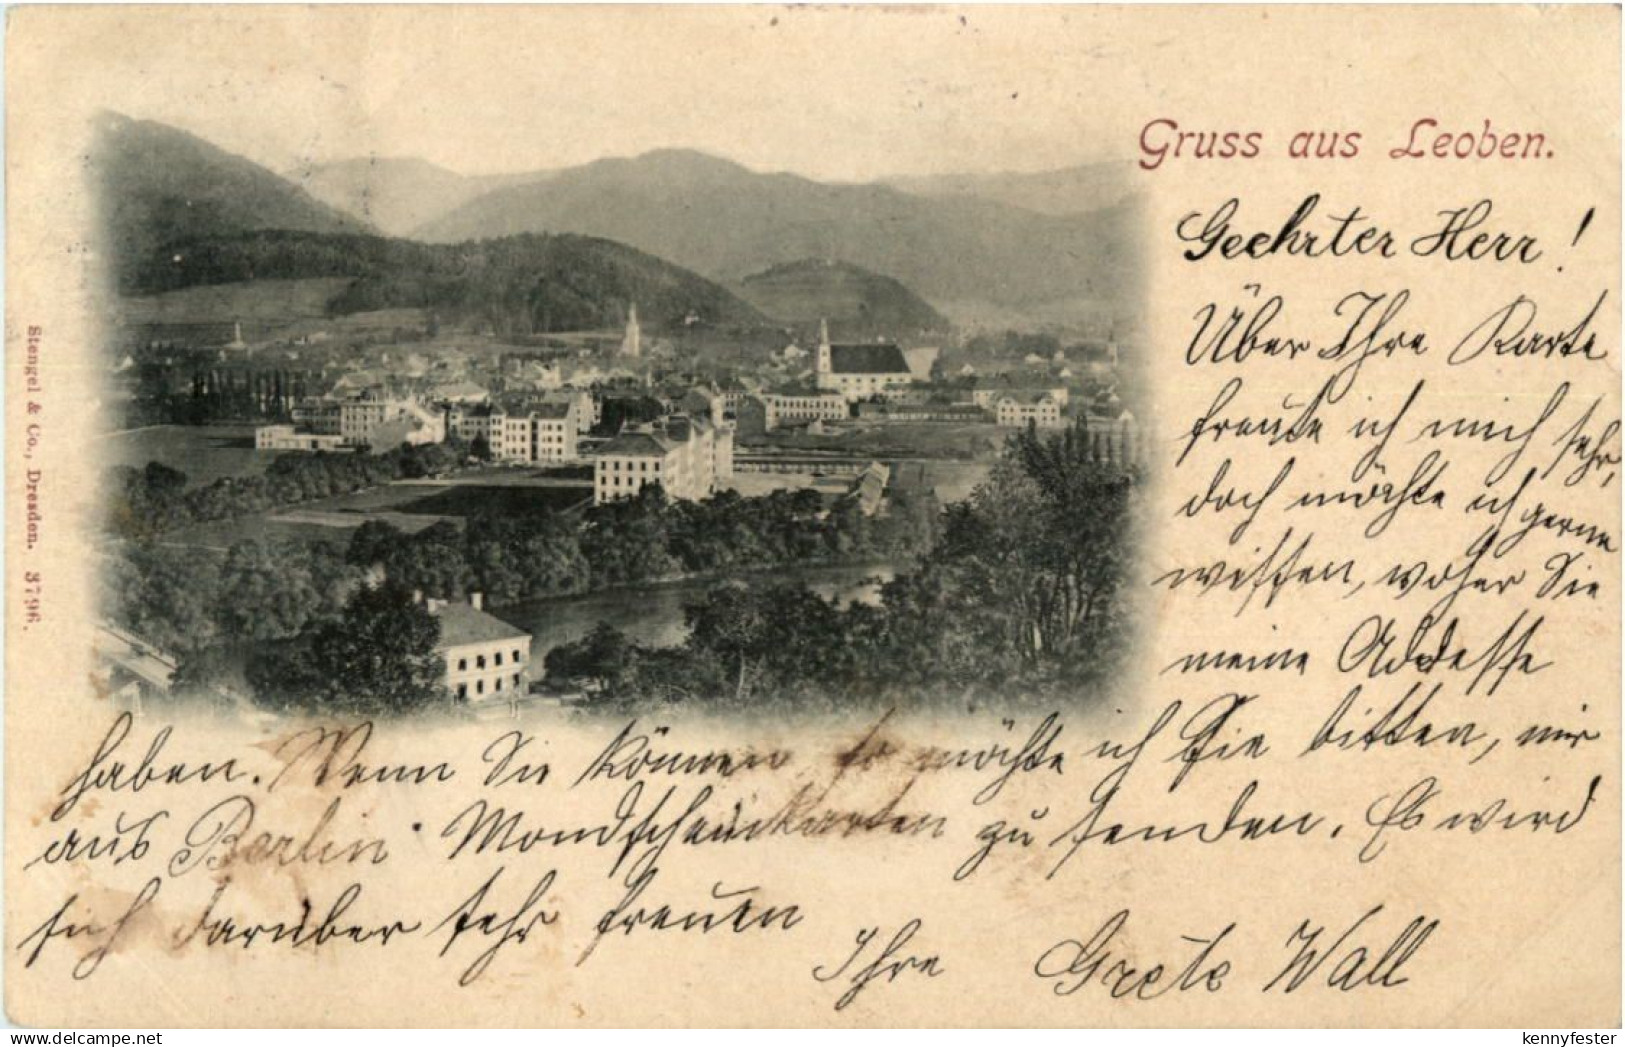 Gruss aus Leoben.
Geehrter Herr!
Über Ihre Karte
freute ich mich sehr,
doch möchte ich gerne
wissen, woher Sie
meine Addesse
haben. Wenn Sie können so möchte ich Sie bitten, mir
aus Berlin Mondscheinkarten zu senden. Es wird
sich darüber sehr freuen
Ihre Grete Wall
Stengel & Co., Dresden. 3796.
delcampe.net
kennyfester